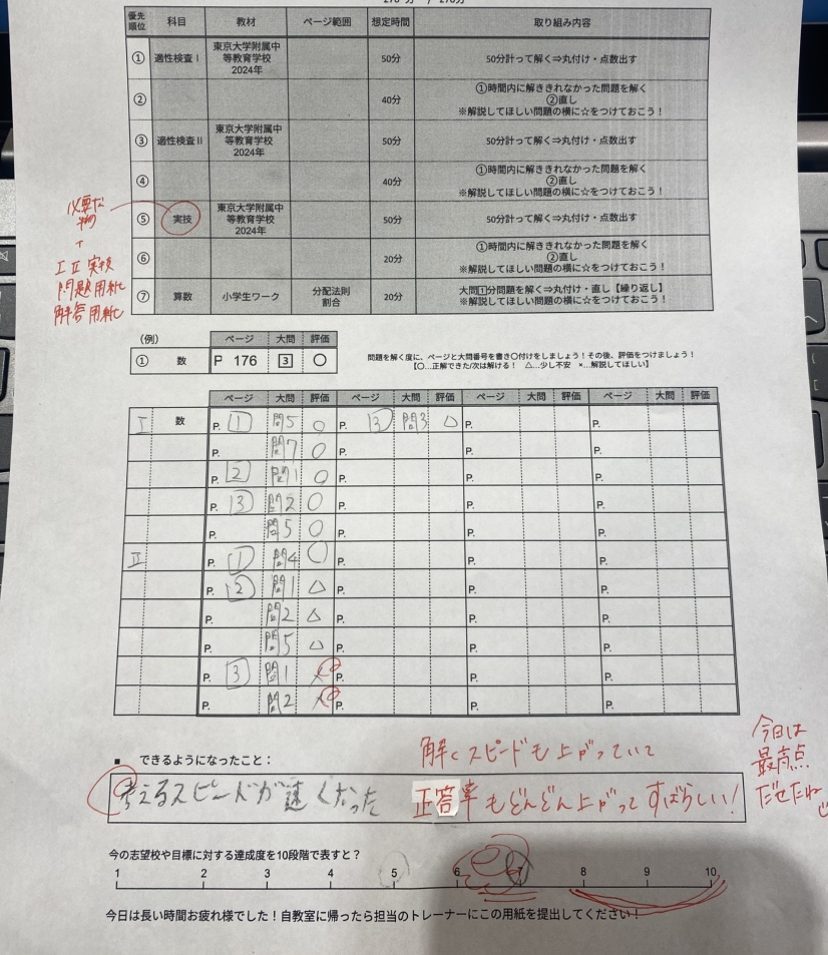 優先順位 科目 教材 ページ範囲 想定時間 取り組み内容
① 適性検査Ⅰ 東京大学附属中等教育学校2024年 50分 50分計って解く⇒丸付け・点数出す
② 40分 ①時間内に解ききれなかった問題を解く ②直し ※解説してほしい問題の横に☆をつけておこう！
③ 適性検査Ⅱ 東京大学附属中等教育学校2024年 50分 50分計って解く⇒丸付け・点数出す
④ 40分 ①時間内に解ききれなかった問題を解く ②直し ※解説してほしい問題の横に☆をつけておこう！
⑤ 実技 東京大学附属中等教育学校2024年 50分 50分計って解く⇒丸付け・点数出す
⑥ 20分 ①時間内に解ききれなかった問題を解く ②直し ※解説してほしい問題の横に☆をつけておこう！
⑦ 算数 小学生ワーク 分配法則 割合 20分 大問1分問題を解く⇒丸付け・直し【繰り返し】 ※解説してほしい問題の横に☆をつけておこう！
必要な
物
+
ⅠⅡ実技
問題用紙
解答用紙
（例） ページ 大問 評価
① 数 P 176 3 〇
問題を解く度に、ページと大問番号を書き〇付けをしましょう！その後、評価をつけましょう！
【〇…正解できた/次は解ける！ △…少し不安 ×…解説してほしい】
ページ 大問 評価 ページ 大問 評価 ページ 大問 評価 ページ 大問 評価
Ⅰ 数 P. 1 問5 〇 P. 3 問3 △ P. P.
P. 問7 〇 P. P. P.
P. 2 問1 〇 P. P. P.
P. 3 問2 〇 P. P. P.
P. 問5 〇 P. P. P.
Ⅱ P. 1 問4 〇 P. P. P.
P. 2 問1 △ P. P. P.
P. 問2 △ P. P. P.
P. 問5 △ P. P. P.
P. 3 問1 × P. P. P.
P. 問2 × P. P. P.
■ できるようになったこと：
考えるスピードが速くなった
解くスピードも上がっていて
正答率もどんどん上がってすばらしい！
今日は
最高点
だせたね
今の志望校や目標に対する達成度を10段階で表すと？
1 2 3 4 5 6 7 8 9 10
今日は長い時間お疲れ様でした！自教室に帰ったら担当のトレーナーにこの用紙を提出してください！